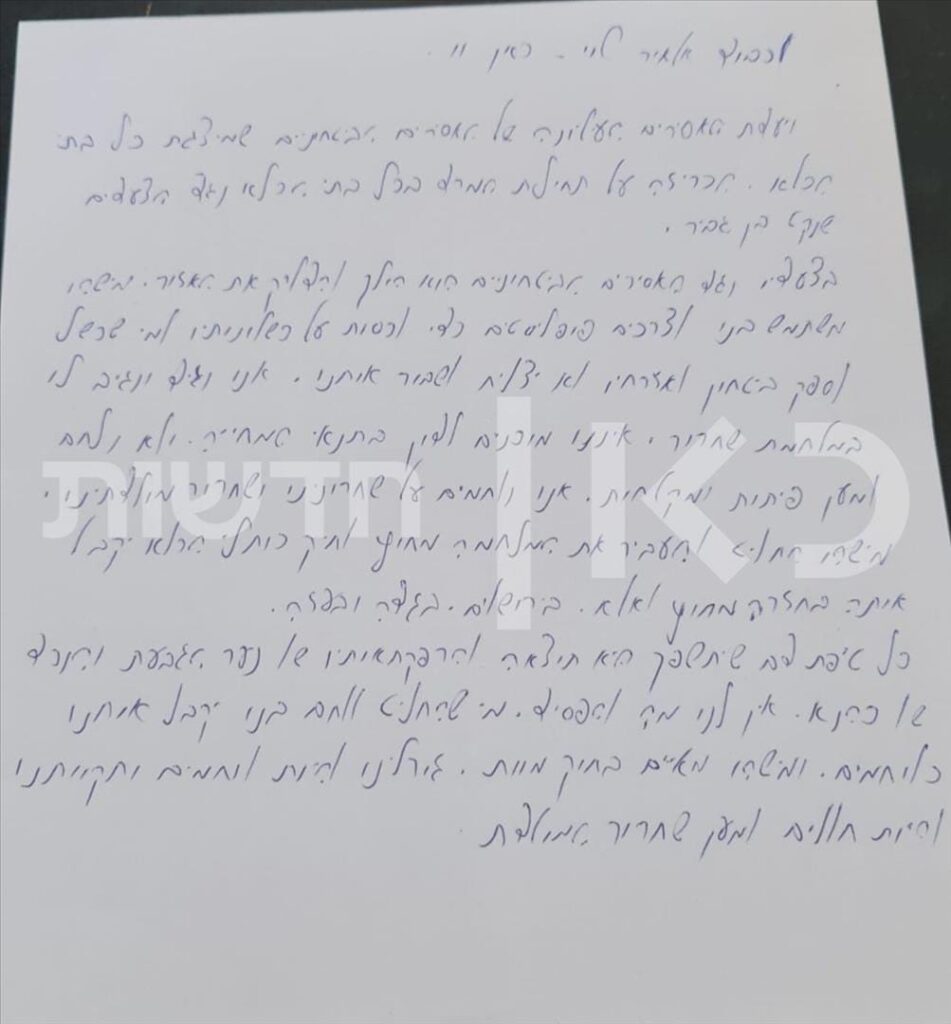 לכבוד אלאיר לוי - כאין וו.
ועדת האסירים העליונה של האסירים הביטחונים שמיצגת כל בתי
הכלא. הכריזה על תחילת המרד בכל בתי הכלא נגד הצעדים
שנקט בן גביר.
בצעדיו נגד האסירים הביטחוניים הוא הילך והדליק את האזור. מישהו
משתמש בנו לצרכים פופליסטים כדי לכסות על כשלונותיו ומי שכשל
לספק ביטחון לאזרחיו לא יצליח לשבור אותנו. אנו נגיד ונגיב לו
במלחמת שחרור. איננו מוכנים לדון בתנאי המחייה. ולא נלחם
למען פיתות ומקלחות. אנו לוחמים על שחרורינו ושחרור מולדתינו.
מישהו החליט להעביר את המלחמה מחוץ לתוך כותלי הכלא יקבל
אותה בחזרה מחוץ לכלא. בירושלים. בגדה ובעזה.
כל טיפת דם שתשפך היא תוצאה להרפתקאותיו של נער הגבעות והנכד
של כהנא. אין לנו מה להפסיד. מי שהחליט ללחם בנו יקבל אותנו
כלוחמים. ומישהו מאיים בחוק מוות. גורלינו להיות לוחמים ותקוותנו
להיות חללים למען שחרור המולדת
כאן חדשות